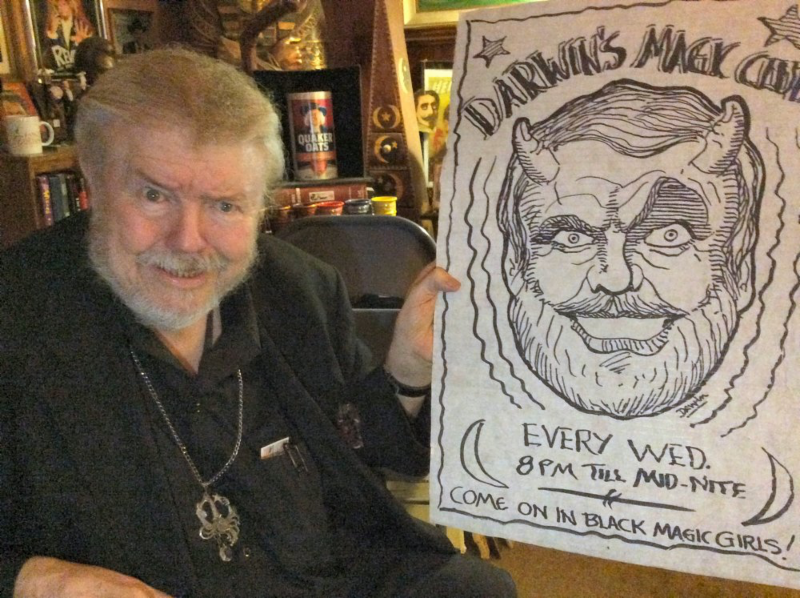 DARWIN'S MAGIC CLUB
EVERY WED.
8 PM TILL MID-NITE
COME ON IN BLACK MAGIC GIRLS!
QUAKER
OATS